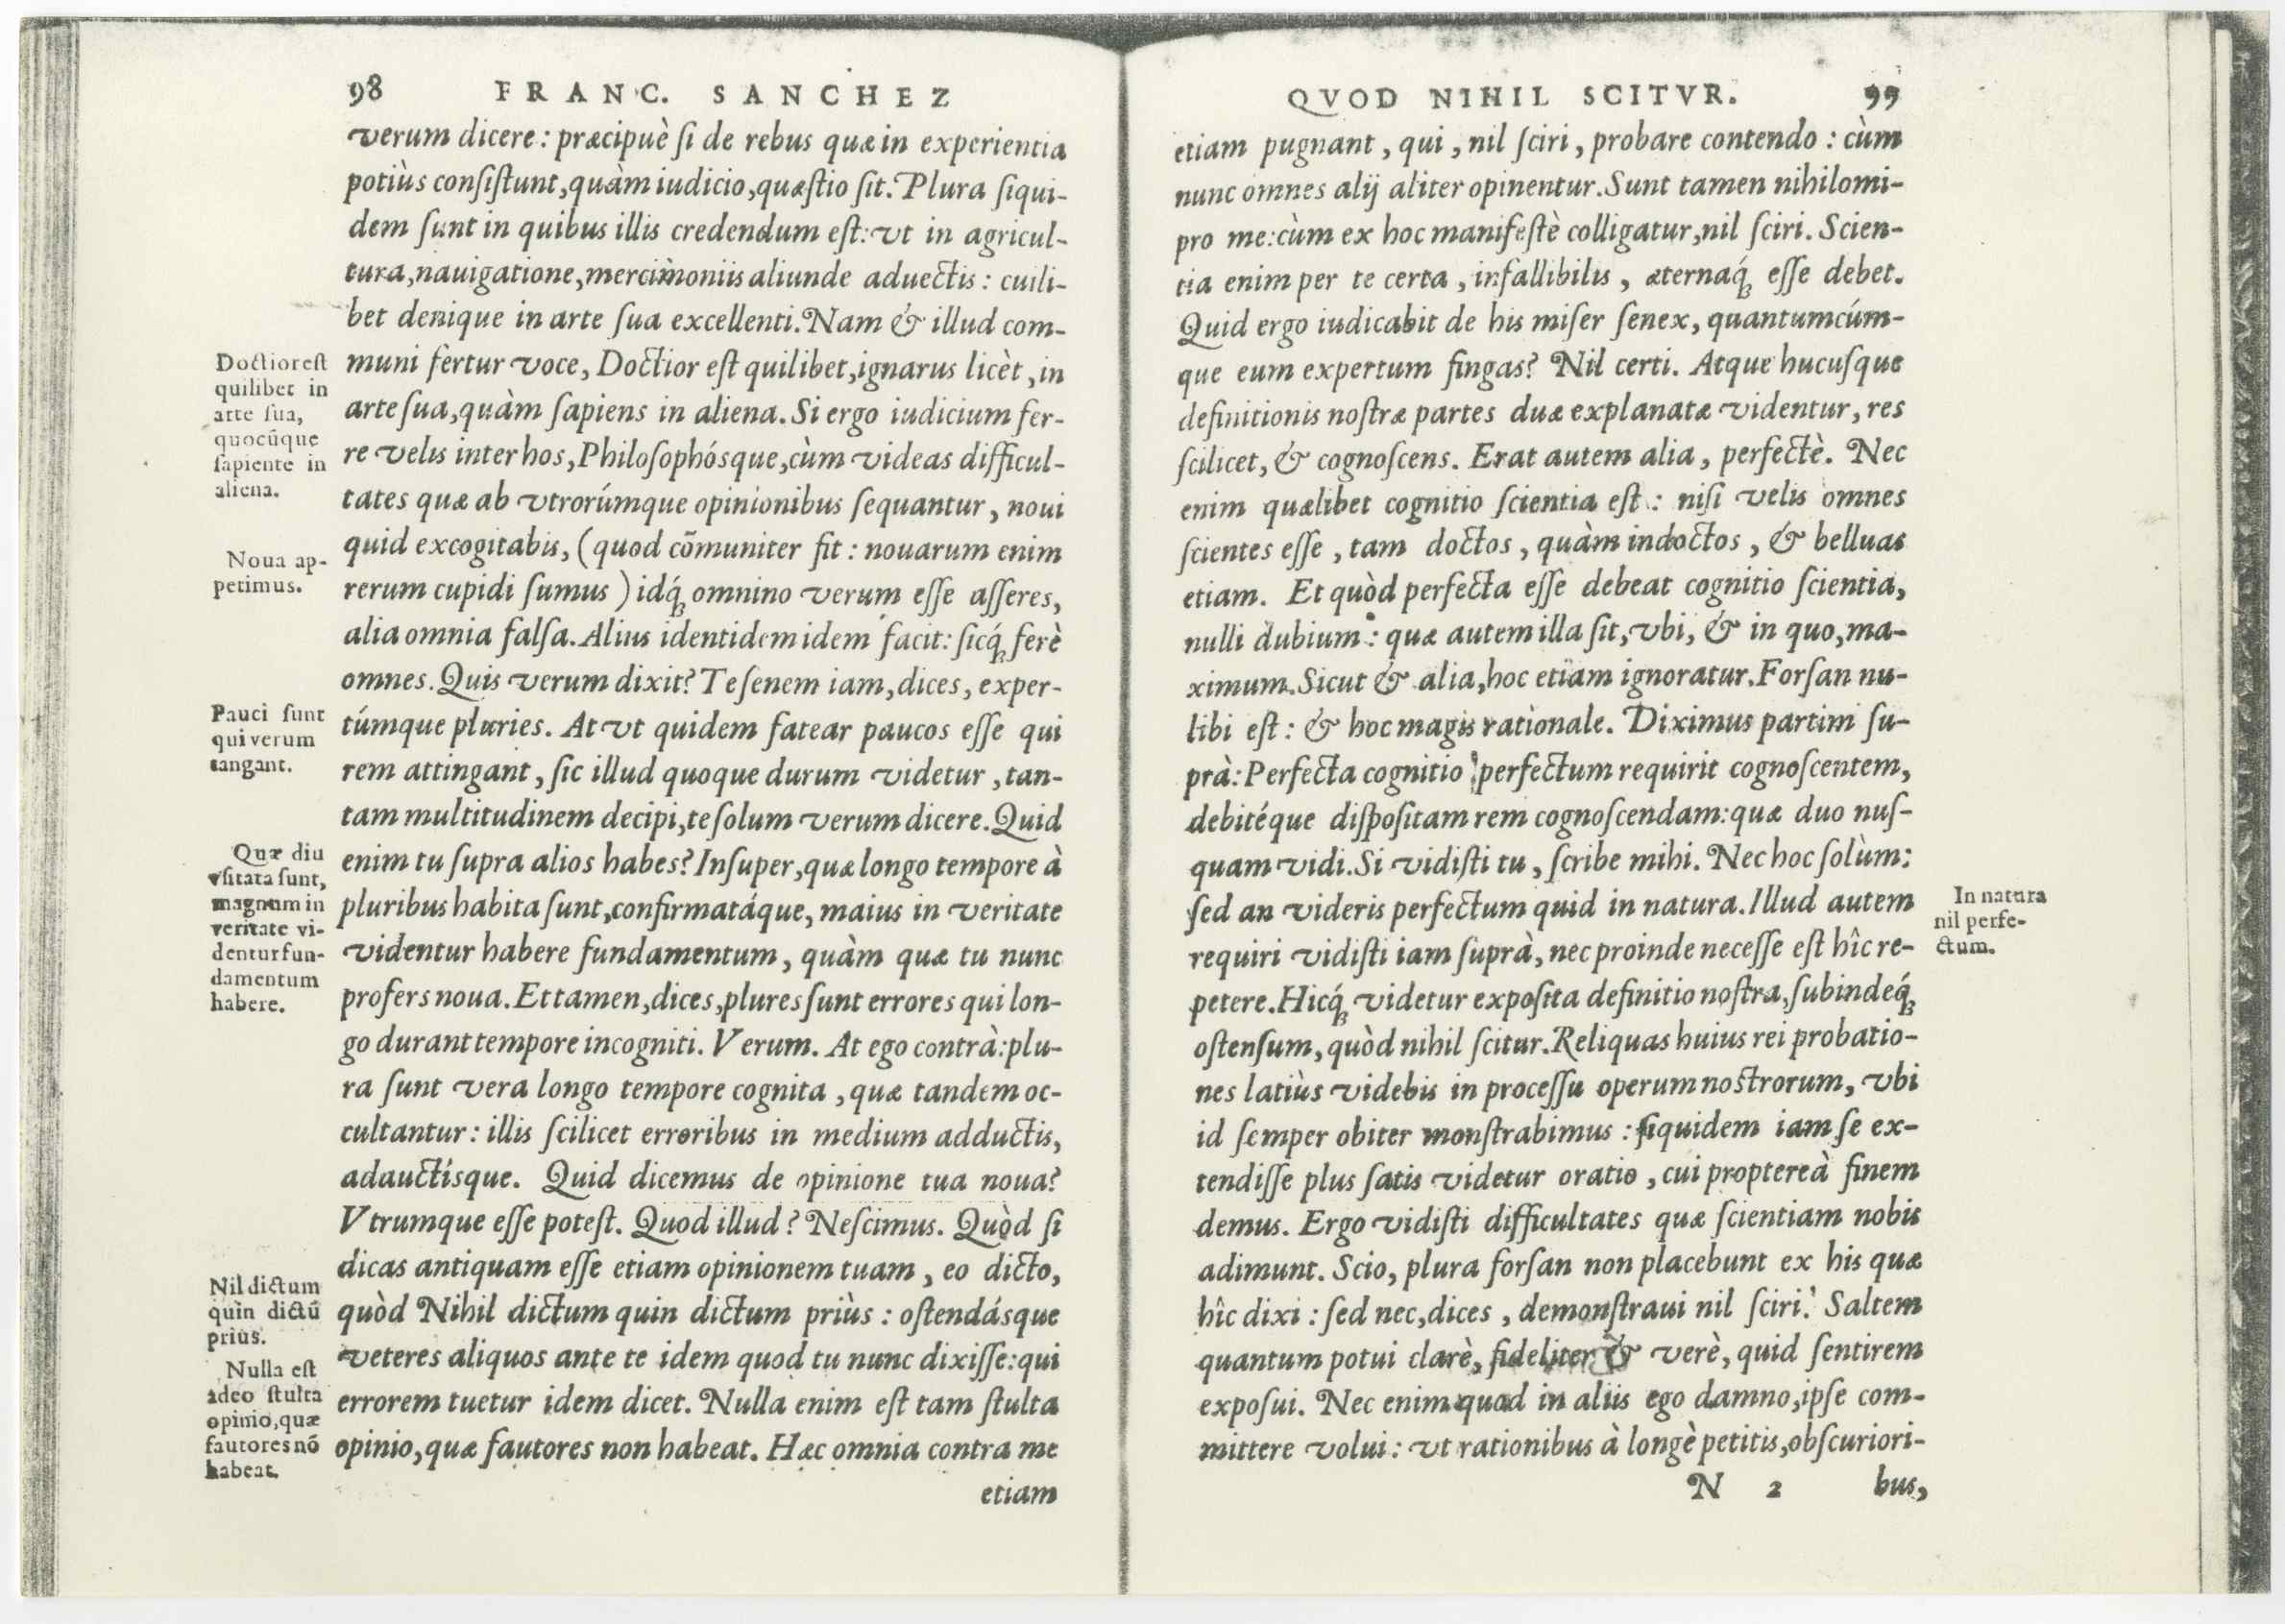 98 FRANC. SANCHEZ
verum dicere: præcipuè ſi de rebus quæ in experientia
potiùs conſiſtunt, quàm iudicio, quæſtio ſit. Plura ſiqui-
dem ſunt in quibus illis credendum eſt: vt in agricul-
tura, nauigatione, mercimoniis aliunde aduectis: cuili-
bet denique in arte ſua excellenti. Nam & illud com-
muni fertur voce, Doctior eſt quilibet, ignarus licèt, in
arte ſua, quàm ſapiens in aliena. Si ergo iudicium fer-
re velis inter hos, Philoſophósque, cùm videas difficul-
tates quæ ab vtrorúmque opinionibus ſequantur, noui
quid excogitabis, (quod cõmuniter fit: nouarum enim
rerum cupidi ſumus) idq́; omnino verum eſſe aſſeres,
alia omnia falſa. Alius identidem idem facit: ſicq́; ferè
omnes. Quis verum dixit? Te ſenem iam, dices, exper-
túmque pluries. At vt quidem fatear paucos eſſe qui
rem attingant, ſic illud quoque durum videtur, tan-
tam multitudinem decipi, te ſolum verum dicere. Quid
enim tu ſupra alios habes? Inſuper, quæ longo tempore à
pluribus habita ſunt, confirmatáque, maius in veritate
videntur habere fundamentum, quàm quæ tu nunc
profers noua. Et tamen, dices, plures ſunt errores qui lon-
go durant tempore incogniti. Verum. At ego contrà: plu-
ra ſunt vera longo tempore cognita, quæ tandem oc-
cultantur: illis ſcilicet erroribus in medium adductis,
adauctísque. Quid dicemus de opinione tua noua?
Vtrumque eſſe poteſt. Quod illud? Neſcimus. Quòd ſi
dicas antiquam eſſe etiam opinionem tuam, eo dicto,
quòd Nihil dictum quin dictum priùs: oſtendásque
veteres aliquos ante te idem quod tu nunc dixiſſe: qui
errorem tuetur idem dicet. Nulla enim eſt tam ſtulta
opinio, quæ fautores non habeat. Hæc omnia contra me
etiam
Doctior eſt
quilibet in
arte ſua,
quocũque
ſapiente in
aliena.
Noua ap-
petimus.
Pauci ſunt
qui verum
tangant.
Quæ diu
vſitata ſunt,
magnum in
veritate vi-
dentur fun-
damentum
habere.
Nil dictum
quin dictũ
priùs.
Nulla eſt
adeo ſtulta
opinio, quæ
fautores nõ
habeat.
QVOD NIHIL SCITVR. 99
etiam pugnant, qui, nil ſciri, probare contendo: cùm
nunc omnes alij aliter opinentur. Sunt tamen nihilomi-
pro me: cùm ex hoc manifeſtè colligatur, nil ſciri. Scien-
tia enim per te certa, infallibilis, æternaq́; eſſe debet.
Quid ergo iudicabit de his miſer ſenex, quantumcúm-
que eum expertum fingas? Nil certi. Atque hucuſque
definitionis noſtræ partes duæ explanatæ videntur, res
ſcilicet, & cognoſcens. Erat autem alia, perfectè. Nec
enim quælibet cognitio ſcientia eſt: niſi velis omnes
ſcientes eſſe, tam doctos, quàm indoctos, & belluas
etiam. Et quòd perfecta eſſe debeat cognitio ſcientia,
nulli dubium: quæ autem illa ſit, vbi, & in quo, ma-
ximum. Sicut & alia, hoc etiam ignoratur. Forſan nu-
libi eſt: & hoc magis rationale. Diximus partim ſu-
prà: Perfecta cognitio perfectum requirit cognoſcentem,
debitéque diſpoſitam rem cognoſcendam: quæ duo nuſ-
quam vidi. Si vidiſti tu, ſcribe mihi. Nec hoc ſolùm:
ſed an videris perfectum quid in natura. Illud autem
requiri vidiſti iam ſuprà, nec proinde neceſſe eſt hîc re-
petere. Hicq́; videtur expoſita definitio noſtra, ſubindeq́;
oſtenſum, quòd nihil ſcitur. Reliquas huius rei probatio-
nes latiùs videbis in proceſſu operum noſtrorum, vbi
id ſemper obiter monſtrabimus: ſiquidem iam ſe ex-
tendiſſe plus ſatis videtur oratio, cui propterea̍ finem
demus. Ergo vidiſti difficultates quæ ſcientiam nobis
adimunt. Scio, plura forſan non placebunt ex his quæ
hîc dixi: ſed nec, dices, demonſtraui nil ſciri. Saltem
quantum potui clarè, fideliter & verè, quid ſentirem
expoſui. Nec enim quod in aliis ego damno, ipſe com-
mittere volui: vt rationibus à longè petitis, obſcuriori-
N 2 bus,
In natura
nil perfe-
ctum.